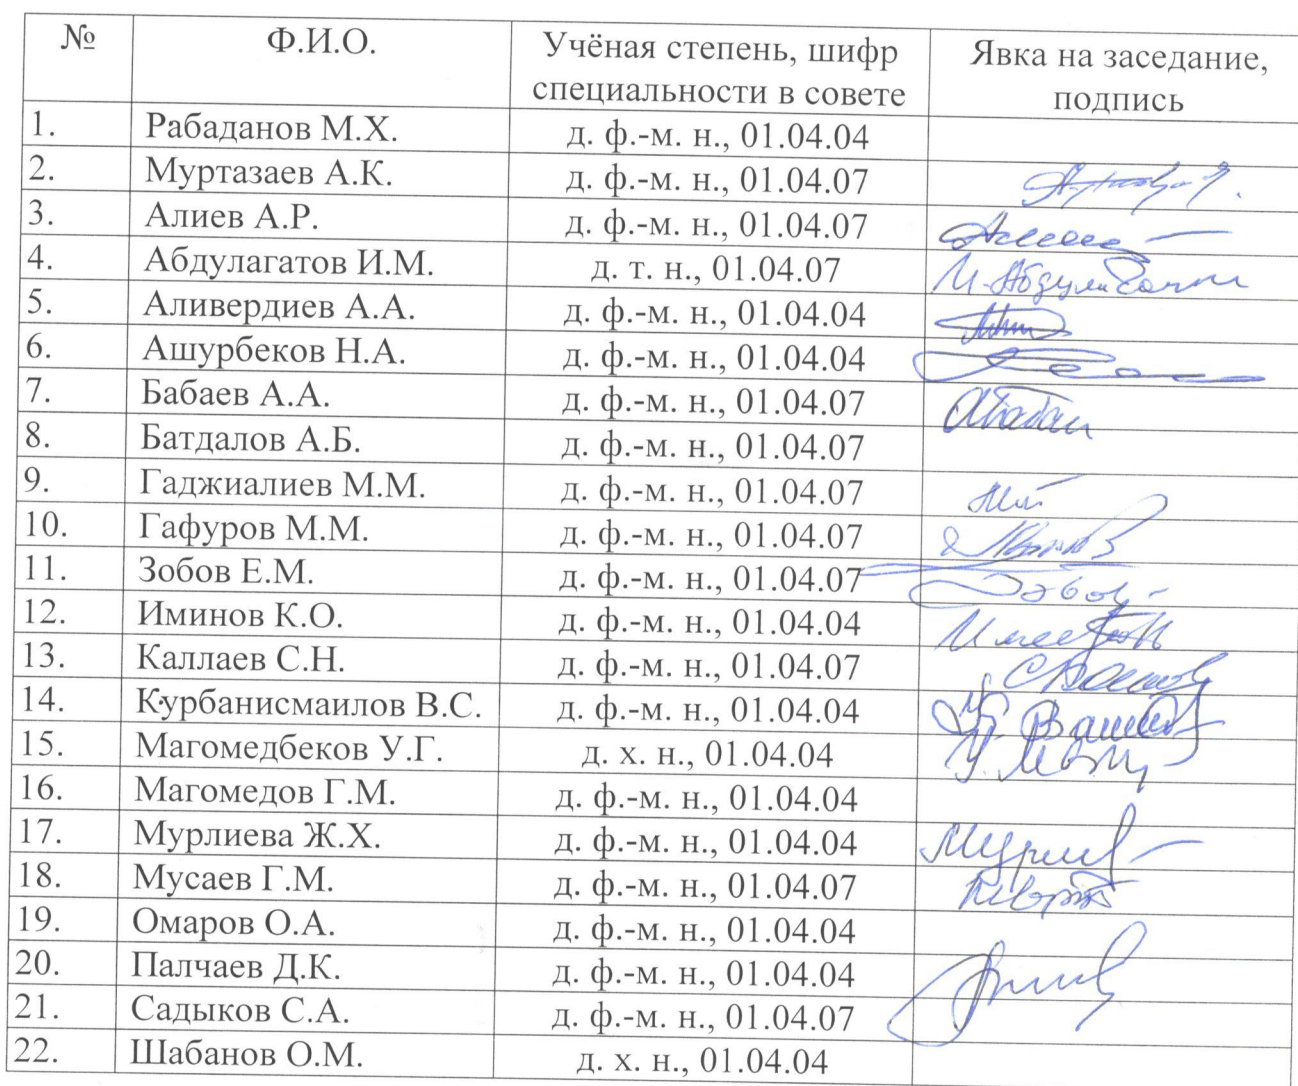 № Ф.И.О. Учёная степень, шифр специальности в совете Явка на заседание, подпись
1. Рабаданов М.Х. д. ф.-м. н., 01.04.04
2. Муртазаев А.К. д. ф.-м. н., 01.04.07
3. Алиев А.Р. д. ф.-м. н., 01.04.07
4. Абдулагатов И.М. д. т. н., 01.04.07
5. Аливердиев А.А. д. ф.-м. н., 01.04.04
6. Ашурбеков Н.А. д. ф.-м. н., 01.04.04
7. Бабаев А.А. д. ф.-м. н., 01.04.07
8. Батдалов А.Б. д. ф.-м. н., 01.04.07
9. Гаджиалиев М.М. д. ф.-м. н., 01.04.07
10. Гафуров М.М. д. ф.-м. н., 01.04.07
11. Зобов Е.М. д. ф.-м. н., 01.04.07
12. Иминов К.О. д. ф.-м. н., 01.04.04
13. Каллаев С.Н. д. ф.-м. н., 01.04.07
14. Курбанисмаилов В.С. д. ф.-м. н., 01.04.04
15. Магомедбеков У.Г. д. х. н., 01.04.04
16. Магомедов Г.М. д. ф.-м. н., 01.04.04
17. Мурлиева Ж.Х. д. ф.-м. н., 01.04.04
18. Мусаев Г.М. д. ф.-м. н., 01.04.07
19. Омаров О.А. д. ф.-м. н., 01.04.04
20. Палчаев Д.К. д. ф.-м. н., 01.04.04
21. Садыков С.А. д. ф.-м. н., 01.04.07
22. Шабанов О.М. д. х. н., 01.04.04